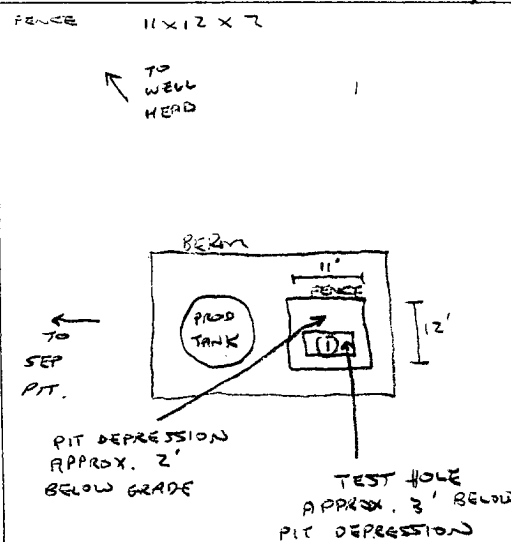 FENCE 11 x 12 x 2
TO
WELL
HEAD
BERM
11'
FENCE
PROD
TANK
①
12'
TO
SEP
PIT.
PIT DEPRESSION
APPROX. 2'
BELOW GRADE
TEST HOLE
APPROX. 3' BELOW
PIT DEPRESSION